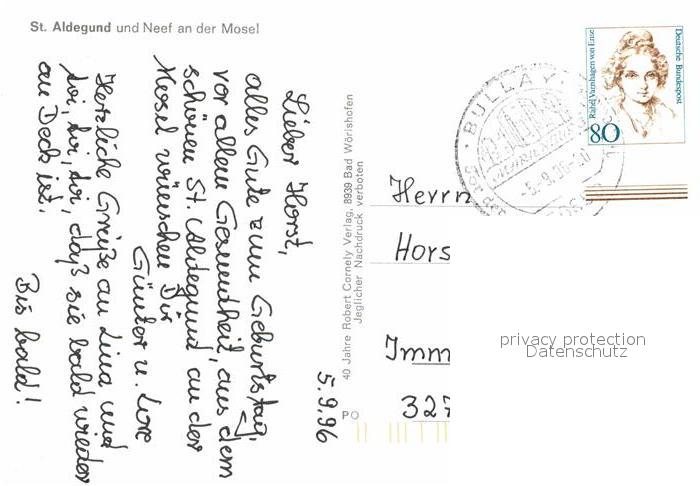 St. Aldegund und Neef an der Mosel
5.9.96
Lieber Horst,
alles Gute zum Geburtstag,
vor allem Gesundheit, aus dem
schönen St. Aldegund an der
Mosel wünschen Dir
Günter u. Lore
Herzliche Grüße an Lina und
toi, toi, toi, daß sie bald wieder
an Deck ist.
Bis bald!
40 Jahre Robert Cornely Verlag, 8939 Bad Wörishofen
Jeglicher Nachdruck verboten
PO
Rahel Varnhagen von Ense
Deutsche Bundespost
80
BULLAY
-5.9.96-
Herrn
Hors
Imm
327
privacy protection
Datenschutz